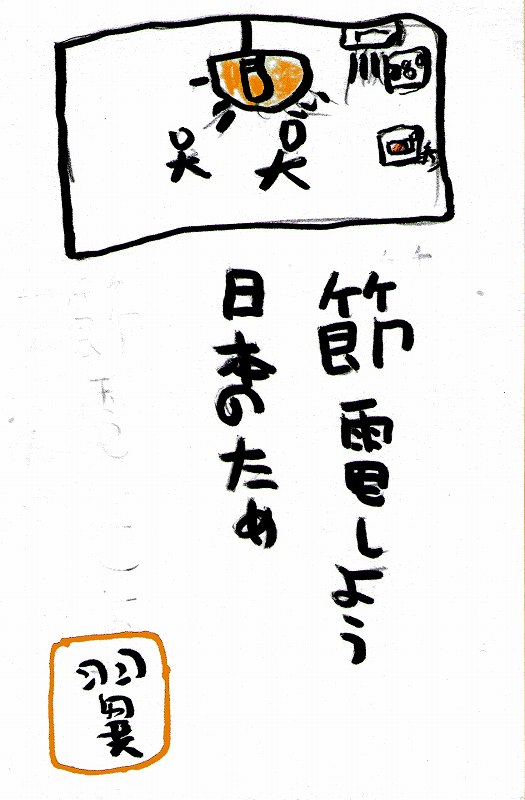 28°
節電しよう
日本のため
翼